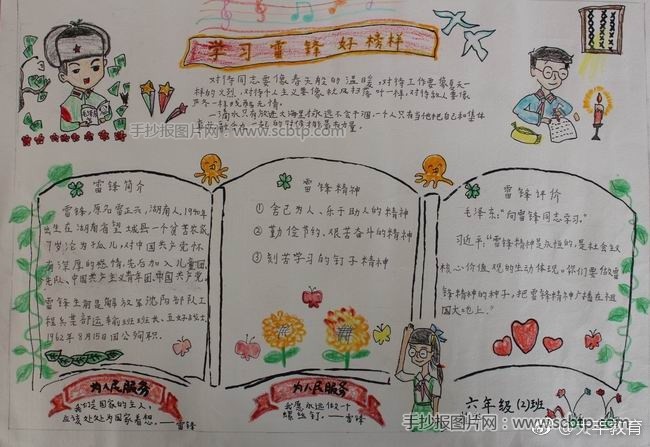 学习雷锋好榜样
对待同志要像春天般的温暖,对待工作要像夏天一
样的火热,对待个人主义要像秋风扫落叶一样,对待敌人要像
严冬一样残酷无情。
一滴水只有放进大海里才永远不会干涸,一个人只有当他把自己和集体
事业融合在一起的时候才能最有力量。
手抄报图片网
www.scbtp.com
雷锋简介
雷锋,原名雷正兴,湖南人,1940年
出生在湖南省望城县一个贫苦农家
7岁沦为孤儿,对中国共产党怀
有深厚的感情,先后加入儿童团,
先队、中国共产主义青年团、中国共产党。
雷锋生前是解放军沈阳部队工
程兵某部运输班班长、五好战士,
1962年8月15日因公殉职。
为人民服务
我们是国家的主人,
应该处处为国家着想。——雷锋
雷锋精神
① 舍己为人、乐于助人的精神
② 勤俭节约、艰苦奋斗的精神
③ 刻苦学习的钉子精神
为人民服务
我愿永远做一个
螺丝钉。——雷锋
雷锋评价
毛泽东:"向雷锋同志学习。"
习近平:"雷锋精神是永恒的,是社会主义
核心价值观的生动体现。你们要做雷
锋精神的种子,把雷锋精神广播在祖
国大地上。"
六年级(2)班
手抄报图片网
www.scbtp.com